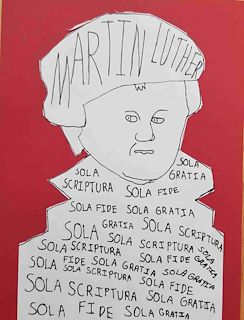 MARTIN LUTHER
SOLA
SOLA GRATIA
SCRIPTURA SOLA FIDE
SOLA FIDE SOLA GRATIA
GRATIA SOLA SCRIPTURA
SOLA SOLA SCRIPTURA SOLA
SOLA SCRIPTURA SOLA FIDE GRATIA
SOLA FIDE SOLA GRATIA SOLA GRATIA
SOLA SOLA SCRIPTURA SOLA FIDE
SOLA SCRIPTURA SOLA GRATIA
SOLA FIDE SOLA GRATIA